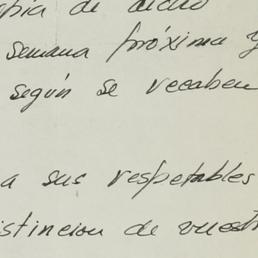 opia de dicho
semana próxima y
según se recaben
a sus respetables
istincion de vuestr